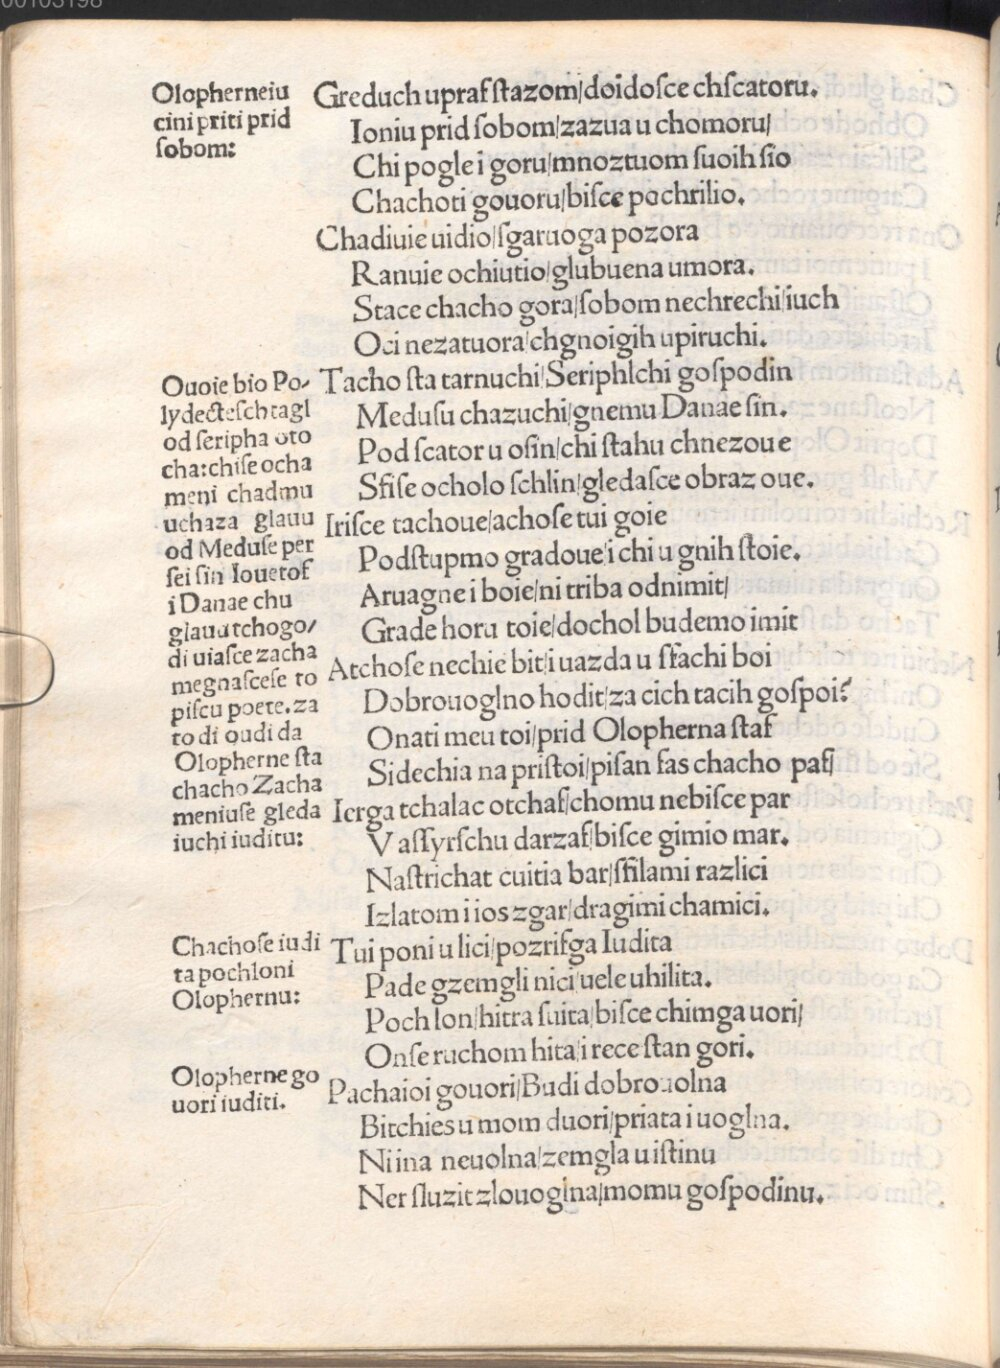 00103198
Olopherne iu
cini priti prid
ſobom:
Greduch upraf ſtazom/doidoſce chſcatoru.
Ioniu prid ſobom/zazua u chomoru/
Chi pogle i goru/mnoztuom ſuoih ſio
Chachoti gouoru/biſce pochrilio.
Chadiuie uidio/ſgaruoga pozora
Ranuie ochiutio/glubuena umora.
Stace chacho gora/ſobom nechrechi/iuch
Oci nezatuora/chgnoigih upiruchi.
Ouoie bio Po-
lydecteſch tagl
od ſeripha oto
cha: chiſe ocha
meni chadmu
uchaza glauu
od Meduſe per
ſei ſin Iouetof
i Danae chu
glauu tchogo/
di uiaſce zacha
megnaſceſe to
piſcu poete. za
to di oudi da
Olopherne ſta
chacho Zacha
meniuſe gleda
iuchi iuditu:
Tacho ſta tarnuchi/Seriphſchi goſpodin
Meduſu chazuchi/gnemu Danae ſin.
Pod ſcator u oſin/chi ſtahu chnezoue
Sfiſe ocholo ſchlin/gledaſce obraz oue.
Iriſce tachoue/achoſe tui goie
Podſtupmo gradoue/i chi u gnih ſtoie.
Aruagne i boie/ni triba odnimit/
Grade horu toie/dochol budemo imit
Atchoſe nechie bit/i uazda u ſtachi boi
Dobrouoglno hodit/za cich tacih goſpoi?
Onati meu toi/prid Olopherna ſtaf
Sidechia na priſtoi/piſan ſas chacho paf/
Ierga tchalac otchaſ/chomu nebiſce par
V aſſyrſchu darzaf/biſce gimio mar.
Naſtrichat cuitia bar/ſfilami razlici
Izlatom i ios zgar/dragimi chamici.
Chachoſe iudi
ta pochloni
Olophernu:
Tui poni u lici/pozrifga Iudita
Pade gzemgli nici/uele uhilita.
Pochlon/hitra ſuita/biſce chimga uori/
Onſe ruchom hita/i rece ſtan gori.
Olopherne go
uori iuditi.
Pachaioi gouori/Budi dobrouolna
Bitchies u mom duori/priata i uoglna.
Ni ina neuolna/zemgla u iſtinu
Ner ſluzit zlouoglna/momu goſpodinu.